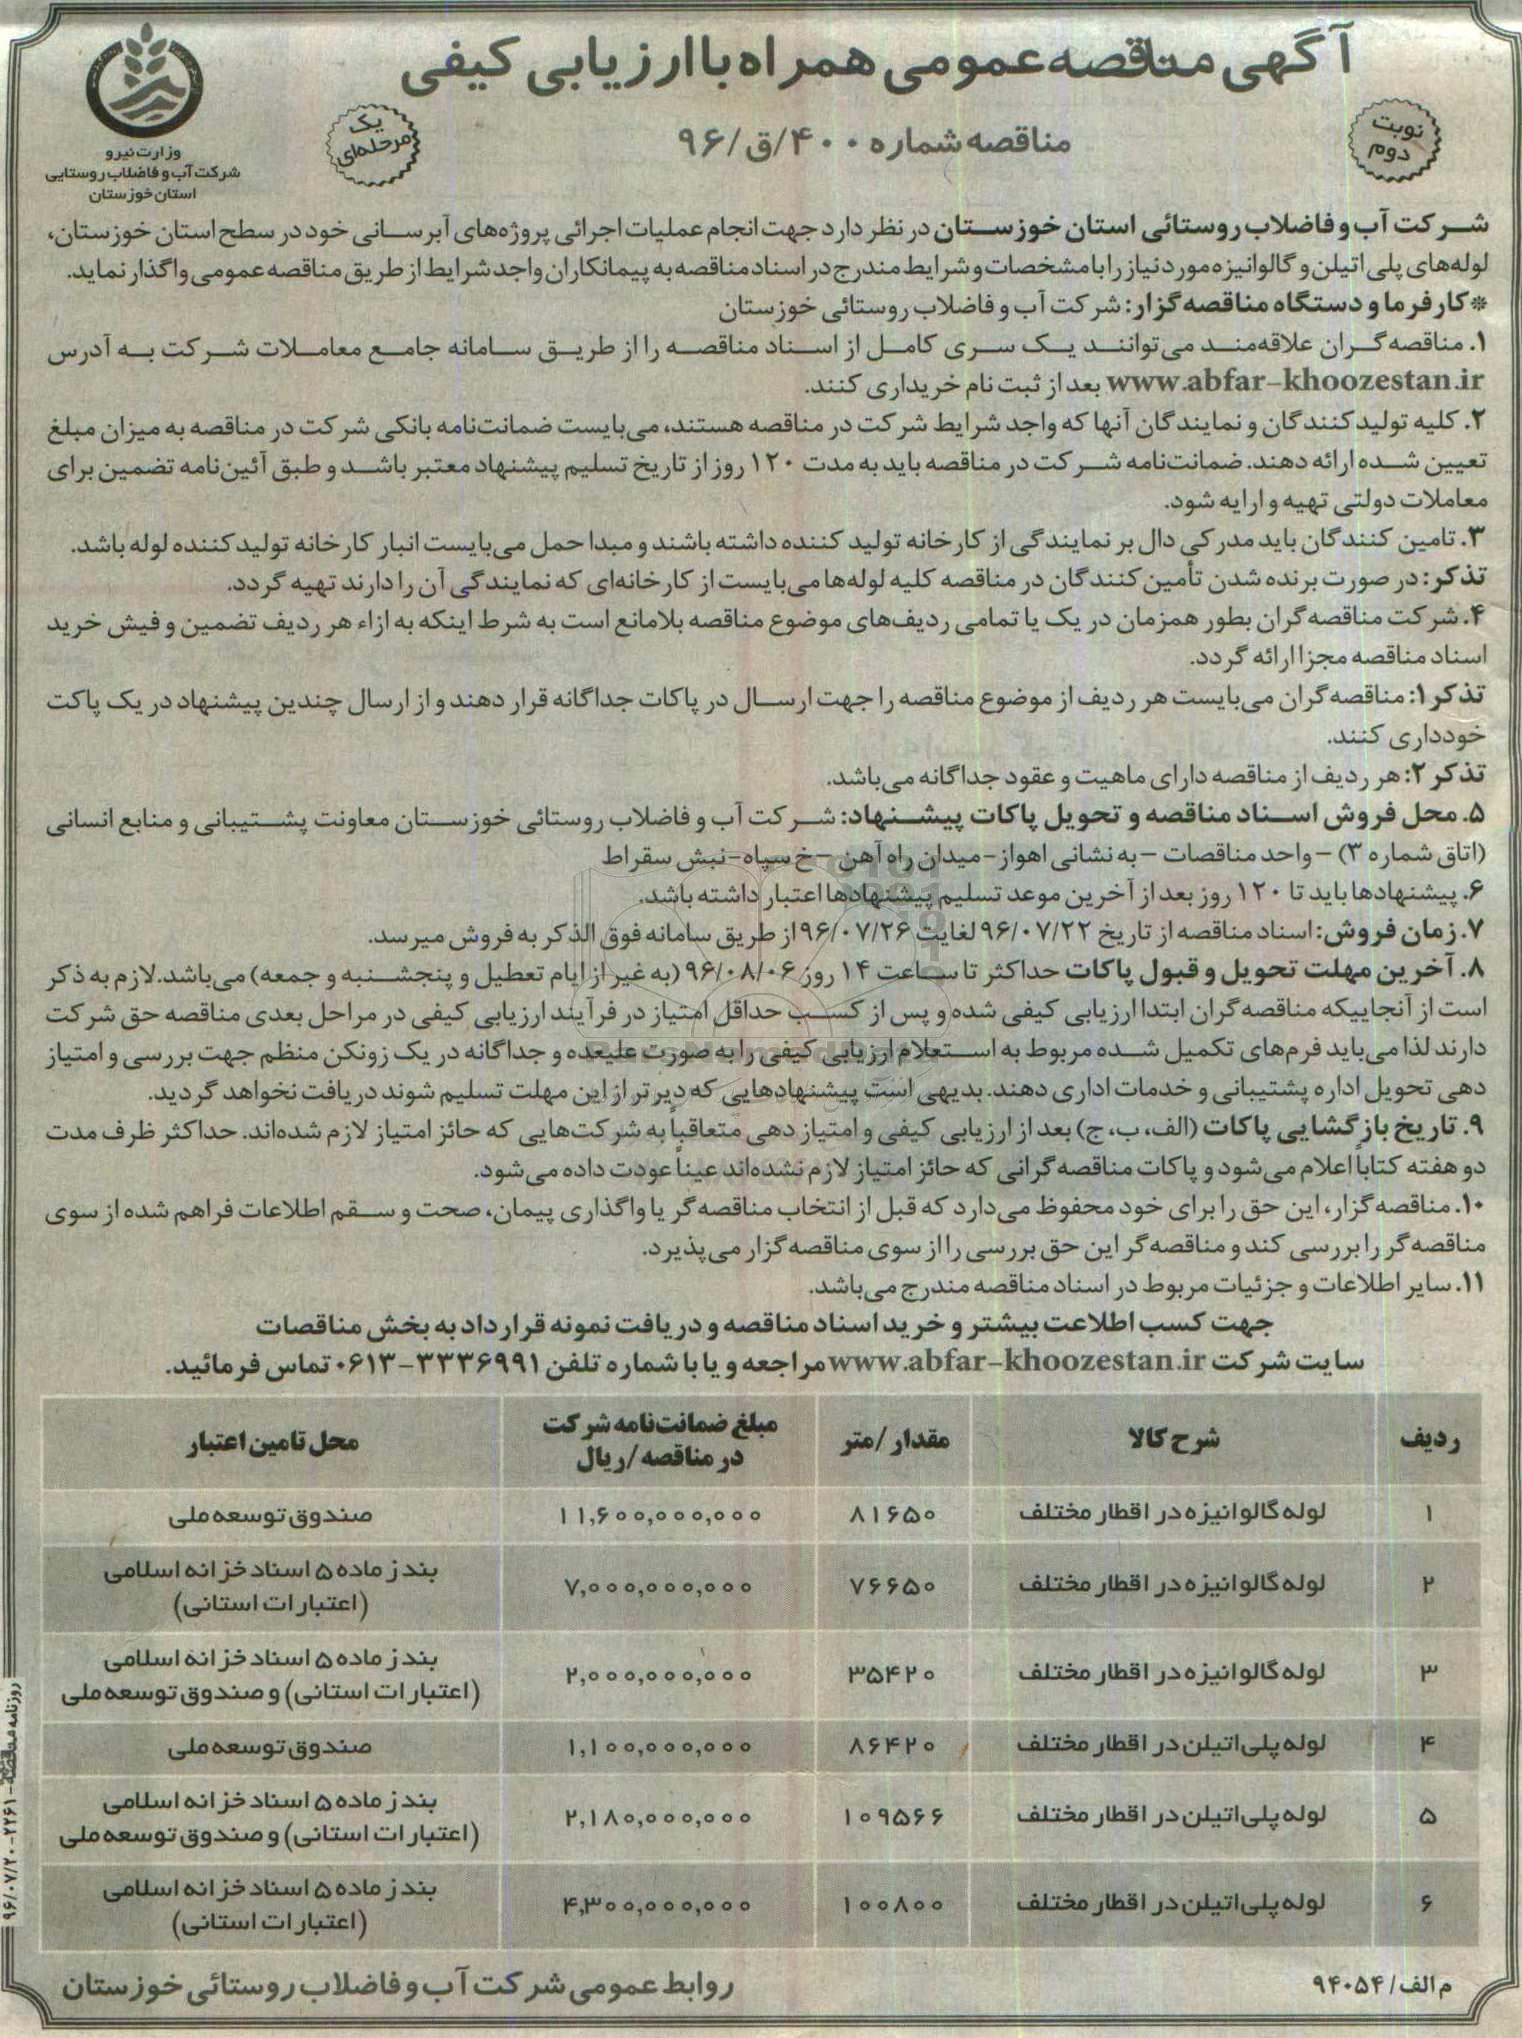 آگهی مناقصه عمومی همراه با ارزیابی کیفی
مناقصه شماره ۴۰۰/ق/۹۶
نوبت دوم
یک مرحله‌ای
وزارت نیرو
شرکت آب و فاضلاب روستایی
استان خوزستان
شرکت آب و فاضلاب روستائی استان خوزستان در نظر دارد جهت انجام عملیات اجرائی پروژه‌های آبرسانی خود در سطح استان خوزستان،
لوله‌های پلی اتیلن و گالوانیزه مورد نیاز را با مشخصات و شرایط مندرج در اسناد مناقصه به پیمانکاران واجد شرایط از طریق مناقصه عمومی واگذار نماید.
*کارفرما و دستگاه مناقصه گزار: شرکت آب و فاضلاب روستائی خوزستان
۱. مناقصه‌گران علاقه‌مند می‌توانند یک سری کامل از اسناد مناقصه را از طریق سامانه جامع معاملات شرکت به آدرس
www.abfar-khoozestan.ir بعد از ثبت نام خریداری کنند.
۲. کلیه تولیدکنندگان و نمایندگان آنها که واجد شرایط شرکت در مناقصه هستند، می‌بایست ضمانت‌نامه بانکی شرکت در مناقصه به میزان مبلغ
تعیین شده ارائه دهند. ضمانت‌نامه شرکت در مناقصه باید به مدت ۱۲۰ روز از تاریخ تسلیم پیشنهاد معتبر باشد و طبق آئین‌نامه تضمین برای
معاملات دولتی تهیه و ارایه شود.
۳. تامین کنندگان باید مدرکی دال بر نمایندگی از کارخانه تولید کننده داشته باشند و مبدا حمل می‌بایست انبار کارخانه تولیدکننده لوله باشد.
تذکر: در صورت برنده شدن تأمین کنندگان در مناقصه کلیه لوله‌ها می‌بایست از کارخانه‌ای که نمایندگی آن را دارند تهیه گردد.
۴. شرکت مناقصه‌گران بطور همزمان در یک یا تمامی ردیف‌های موضوع مناقصه بلامانع است به شرط اینکه به ازاء هر ردیف تضمین و فیش خرید
اسناد مناقصه مجزا ارائه گردد.
تذکر۱: مناقصه‌گران می‌بایست هر ردیف از موضوع مناقصه را جهت ارسال در پاکات جداگانه قرار دهند و از ارسال چندین پیشنهاد در یک پاکت
خودداری کنند.
تذکر۲: هر ردیف از مناقصه دارای ماهیت و عقود جداگانه می‌باشد.
۵. محل فروش اسناد مناقصه و تحویل پاکات پیشنهاد: شرکت آب و فاضلاب روستائی خوزستان معاونت پشتیبانی و منابع انسانی
(اتاق شماره ۳) – واحد مناقصات – به نشانی اهواز-میدان راه آهن – خ سپاه-نبش سقراط
۶. پیشنهادها باید تا ۱۲۰ روز بعد از آخرین موعد تسلیم پیشنهادها اعتبار داشته باشد.
۷. زمان فروش: اسناد مناقصه از تاریخ ۹۶/۰۷/۲۲ لغایت ۹۶/۰۷/۲۶ از طریق سامانه فوق الذکر به فروش میرسد.
۸. آخرین مهلت تحویل و قبول پاکات حداکثر تا ساعت ۱۴ روز ۹۶/۰۸/۰۶ (به غیر از ایام تعطیل و پنجشنبه و جمعه) می‌باشد.لازم به ذکر
است از آنجاییکه مناقصه‌گران ابتدا ارزیابی کیفی شده و پس از کسب حداقل امتیاز در فرآیند ارزیابی کیفی در مراحل بعدی مناقصه حق شرکت
دارند لذا می‌باید فرم‌های تکمیل شده مربوط به استعلام ارزیابی کیفی را به صورت علیعده و جداگانه در یک زونکن منظم جهت بررسی و امتیاز
دهی تحویل اداره پشتیبانی و خدمات اداری دهند. بدیهی است پیشنهادهایی که دیرتر از این مهلت تسلیم شوند دریافت نخواهد گردید.
۹. تاریخ بازگشایی پاکات (الف، ب، ج) بعد از ارزیابی کیفی و امتیاز دهی متعاقباً به شرکت‌هایی که حائز امتیاز لازم شده‌اند. حداکثر ظرف مدت
دو هفته کتاباً اعلام می‌شود و پاکات مناقصه‌گرانی که حائز امتیاز لازم نشده‌اند عیناً عودت داده می‌شود.
۱۰. مناقصه‌گزار، این حق را برای خود محفوظ می‌دارد که قبل از انتخاب مناقصه‌گر یا واگذاری پیمان، صحت و سقم اطلاعات فراهم شده از سوی
مناقصه‌گر را بررسی کند و مناقصه‌گر این حق بررسی را از سوی مناقصه‌گزار می‌پذیرد.
۱۱. سایر اطلاعات و جزئیات مربوط در اسناد مناقصه مندرج می‌باشد.
جهت کسب اطلاعت بیشتر و خرید اسناد مناقصه و دریافت نمونه قرارداد به بخش مناقصات
سایت شرکت www.abfar-khoozestan.ir مراجعه و یا با شماره تلفن ۳۳۳۶۹۹۱-۰۶۱۳ تماس فرمائید.
ردیف شرح کالا مقدار/متر مبلغ ضمانت‌نامه شرکت در مناقصه/ریال محل تامین اعتبار
۱ لوله گالوانیزه در اقطار مختلف ۸۱۶۵۰ ۱۱,۶۰۰,۰۰۰,۰۰۰ صندوق توسعه ملی
۲ لوله گالوانیزه در اقطار مختلف ۷۶۶۵۰ ۷,۰۰۰,۰۰۰,۰۰۰ بند ز ماده ۵ اسناد خزانه اسلامی (اعتبارات استانی)
۳ لوله گالوانیزه در اقطار مختلف ۳۵۴۲۰ ۲,۰۰۰,۰۰۰,۰۰۰ بند ز ماده ۵ اسناد خزانه اسلامی (اعتبارات استانی) و صندوق توسعه ملی
۴ لوله پلی اتیلن در اقطار مختلف ۸۶۴۲۰ ۱,۱۰۰,۰۰۰,۰۰۰ صندوق توسعه ملی
۵ لوله پلی اتیلن در اقطار مختلف ۱۰۹۵۶۶ ۲,۱۸۰,۰۰۰,۰۰۰ بند ز ماده ۵ اسناد خزانه اسلامی (اعتبارات استانی) و صندوق توسعه ملی
۶ لوله پلی اتیلن در اقطار مختلف ۱۰۰۸۰۰ ۴,۳۰۰,۰۰۰,۰۰۰ بند ز ماده ۵ اسناد خزانه اسلامی (اعتبارات استانی)
م الف/۹۴۰۵۴
روابط عمومی شرکت آب و فاضلاب روستائی خوزستان
روزنامه مناقصه - ۲۲۶۱ - ۹۶/۰۷/۲۰